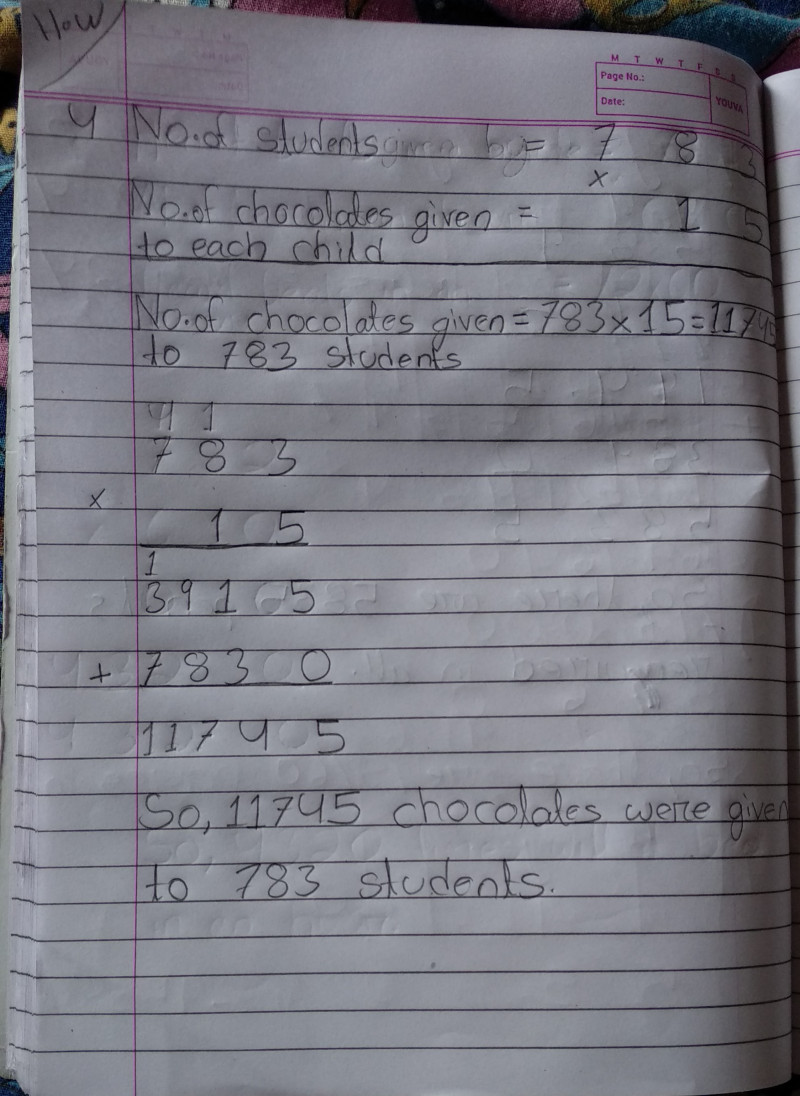 How
M T W T F S S
Page No.:
Date:
YOUVA
4 No. of students = 7 8 3
x
No. of chocolates given = 1 5
to each child
No. of chocolates given = 783 x 15 = 11745
to 783 students
4 1
7 8 3
x
1 5
1
3 9 1 5
+ 7 8 3 0
1 1 7 4 5
So, 11745 chocolates were given
to 783 students.